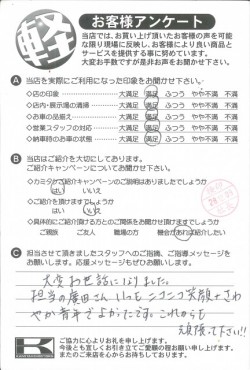 軽
お客様アンケート
当店では、お買い上げ頂いたお客様の声を可能
な限り現場に反映し、お客様により良い商品と
サービスを提供する事に努めています。
大変お手数ですが是非お声をお聞かせ下さい。
A 当店を実際にご利用になった印象をお聞かせ下さい。
◇店の印象 大満足 満足 ふつう やや不満 不満
◇店内・展示場の清掃 大満足 満足 ふつう やや不満 不満
◇お車の品揃え 大満足 満足 ふつう やや不満 不満
◇営業スタッフの対応 大満足 満足 ふつう やや不満 不満
◇納車時のお車の状態 大満足 満足 ふつう やや不満 不満
B 当店はご紹介を大切にしております。
ご紹介キャンペーンについてお聞かせ下さい。
◇カミタからご紹介キャンペーンのご説明はありましたでしょうか
はい いいえ
◇ご紹介を頂けますでしょうか
はい いいえ
◇具体的にご紹介頂ける方とのご関係をお聞かせ頂けますでしょうか
ご親族 ご友人 職場の方 機会があれば紹介したい
C 担当させて頂きましたスタッフへのご指摘、ご指導メッセージを
お願いします。応援メッセージもぜひお願いします。
大変お世話になりました。
担当の廣田さん いつも ニコニコ笑顔 さわ
やか青年でよかったです。これからも
頑張って下さい!!
K
ご協力に心よりお礼を申し上げます。
今後とも宜しくお引き立てご愛顧の程お願い申し上げます。
またのご来店を心からお待ちしております。